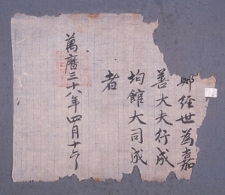 鄭經世為嘉
善大夫行成
均館大司成
者
萬曆三十八年四月十